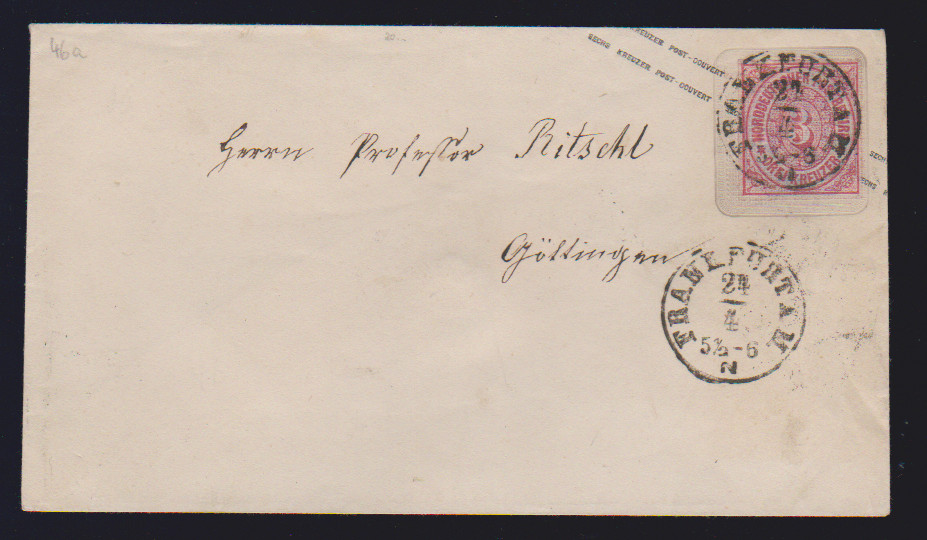 46a
SECHS KREUZER POST-COUVERT
KREUZER POST-COUVERT
NORDDEUTSCHER POSTBEZIRK
3
DREI KREUZER
FRANKFURT A M
24
4
5½-6
Herrn Professor Ritschl
Göttingen
FRANKFURT A M
24
4
5½-6
2
SECHS
SECHS K